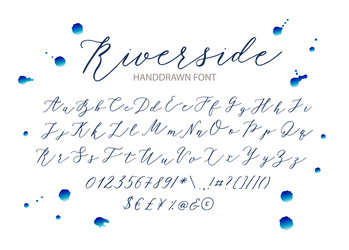 Riverside
HANDDRAWN FONT
Aa Bb Cc Dd Ee Ff Gg Hh Ii
Jj Kk Ll Mm Nn Oo Pp Qq
Rr Ss Tt Uu Vv Ww Xx Yy Zz
0123456789!*\.,!#?[]()
$£€¥%@&©